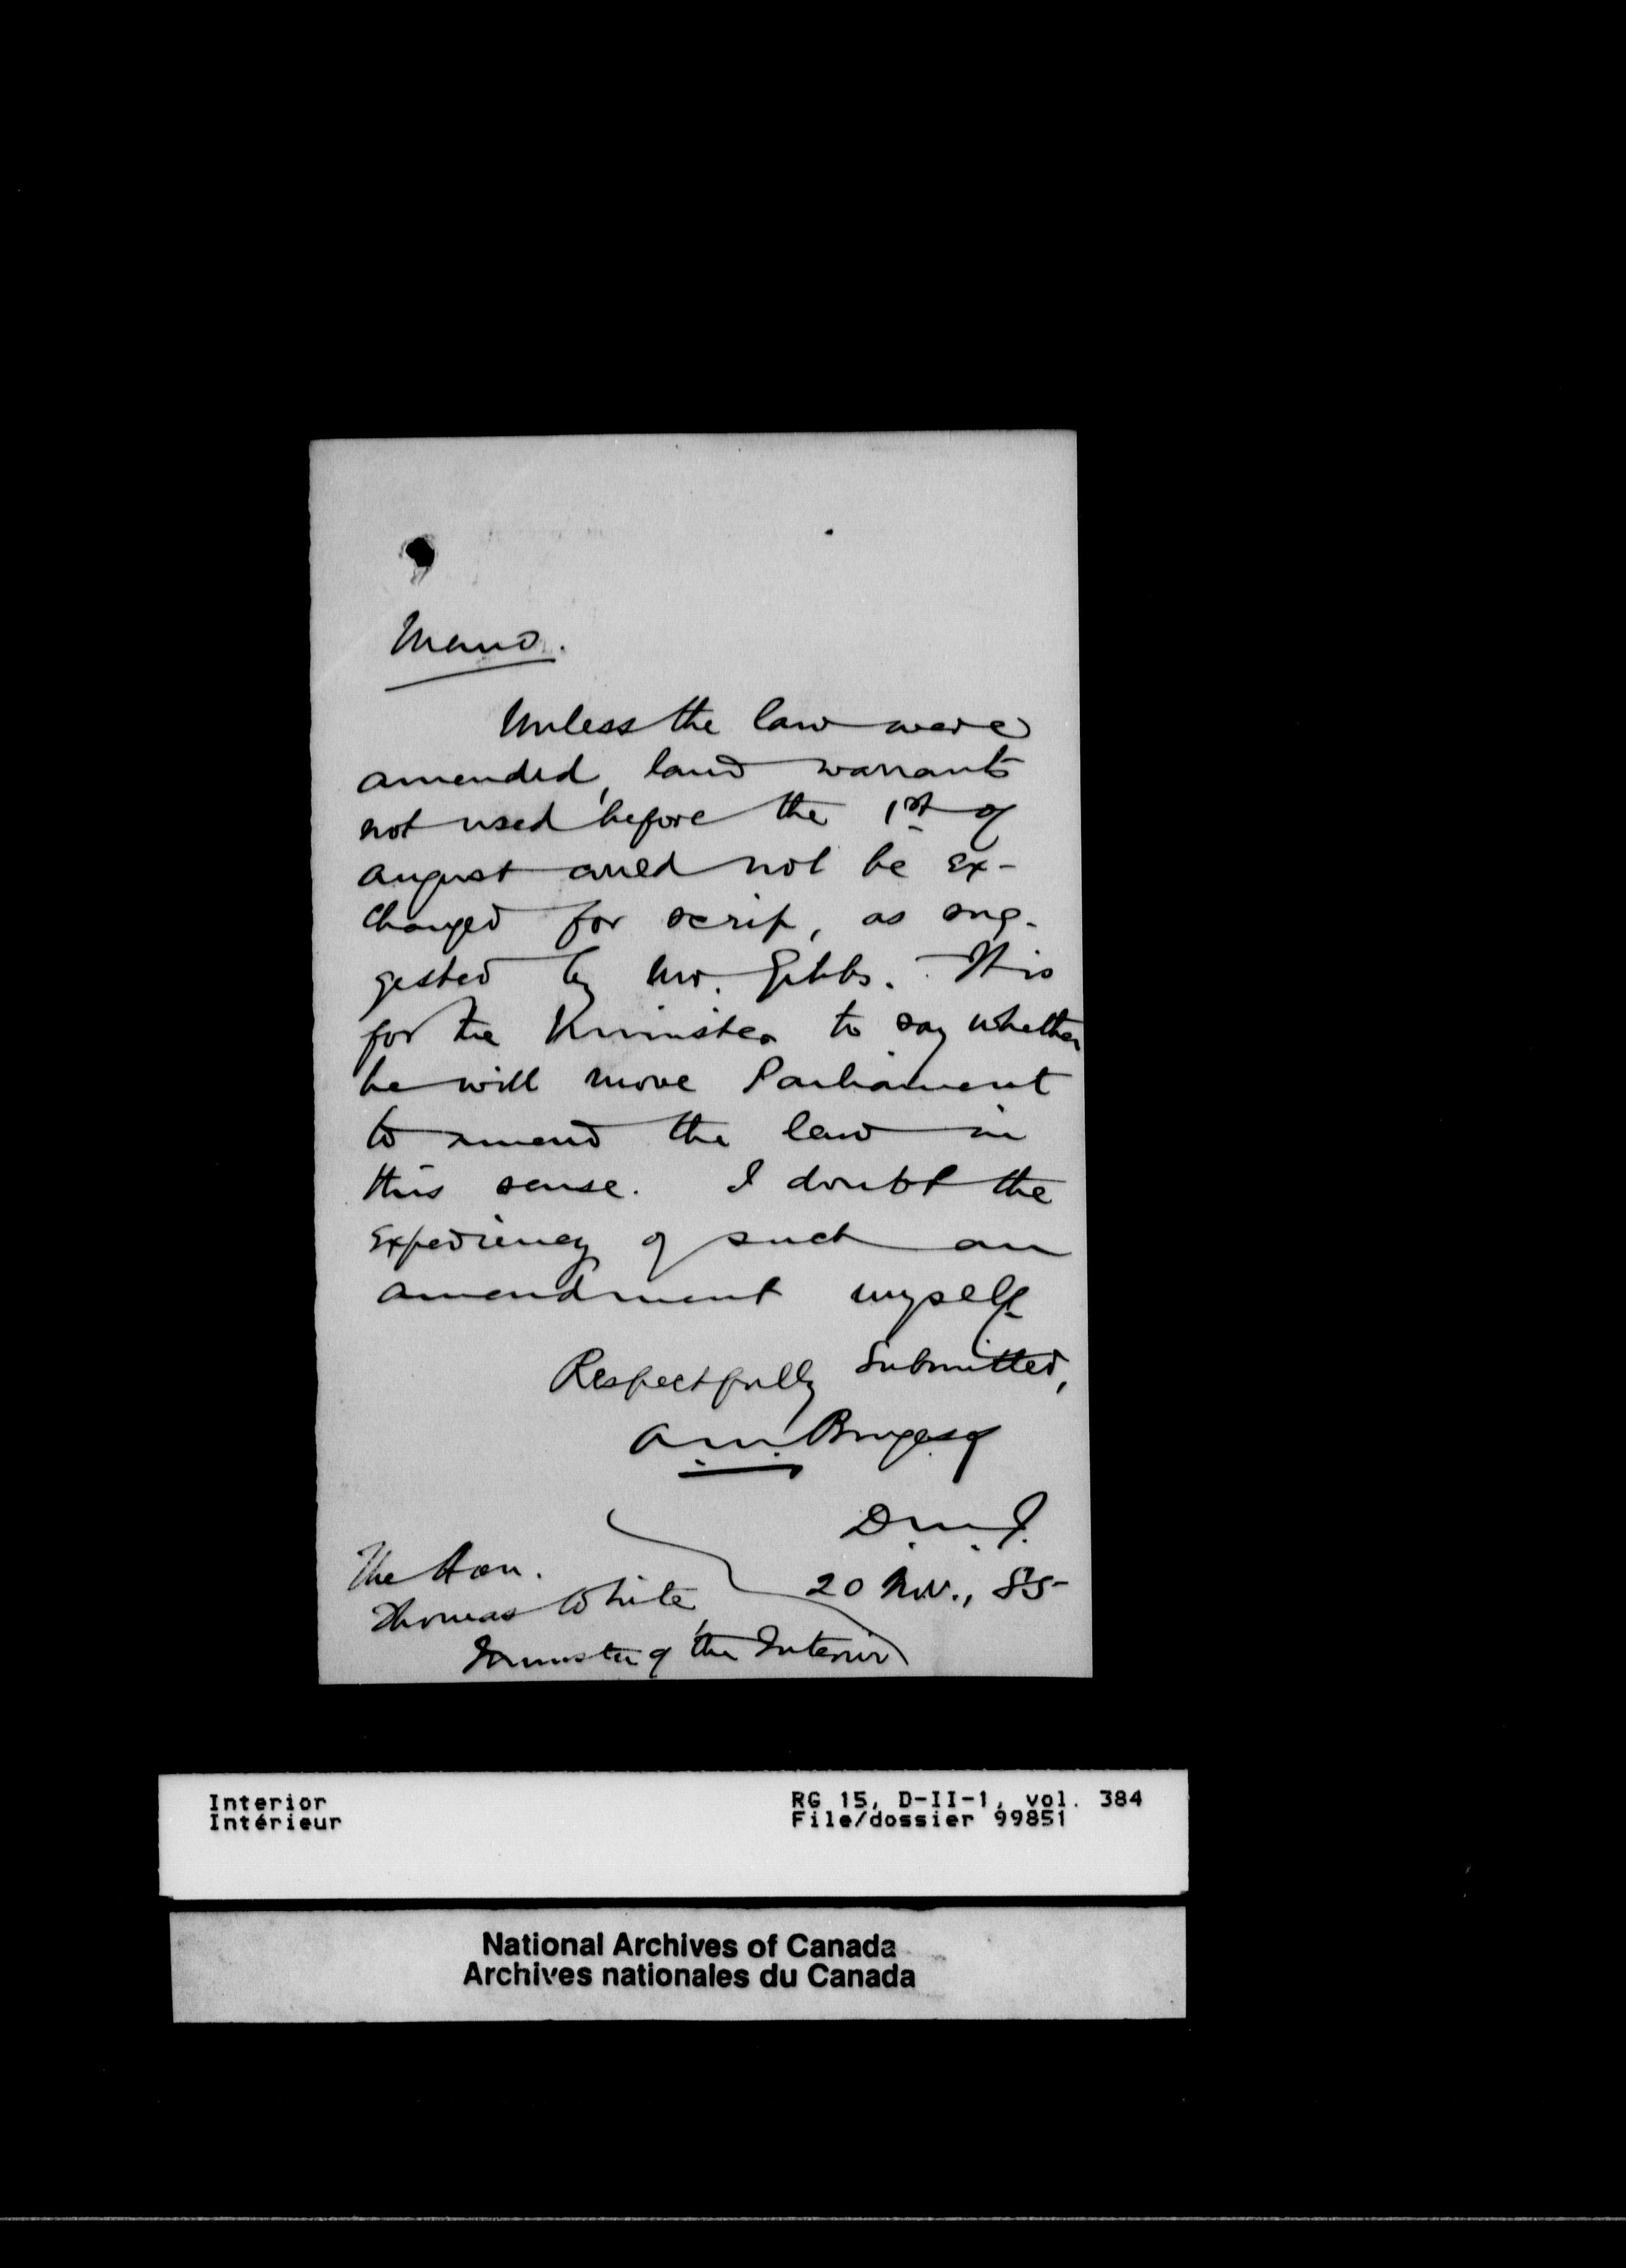 Memo.
Unless the law were
amended, land warrants
not used before the 1st of
August could not be ex-
changed for scrip, as sug-
gested by Mr. Gibbs. It is
for the Minister to say whether
he will move Parliament
to amend the law in
this sense. I doubt the
expediency of such an
amendment myself.
Respectfully submitted,
A. M. Burgess
D. M. I.
20 Nov., 85
The Hon.
Thomas White,
Minister of the Interior
Interior
Intérieur
RG 15, D-II-1, vol. 384
File/dossier 99851
National Archives of Canada
Archives nationales du Canada